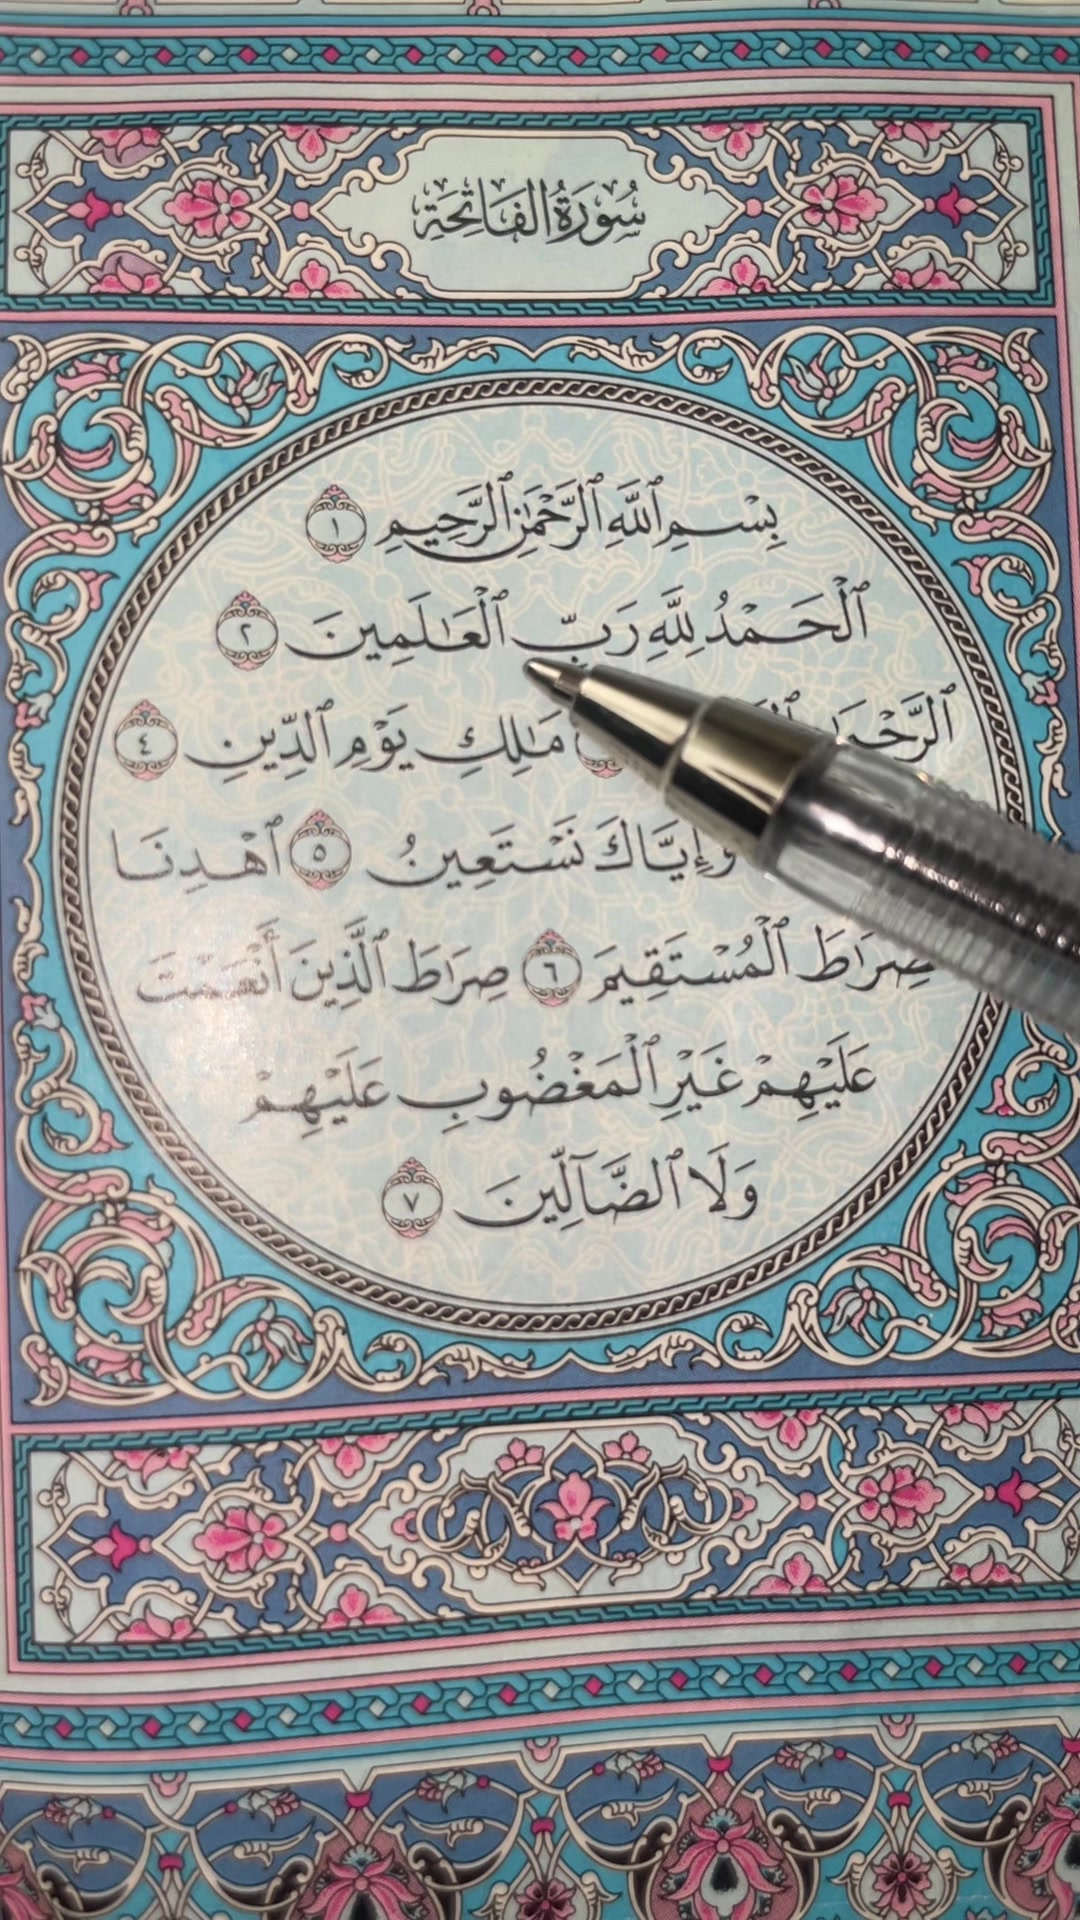 سُورَةُ الفَاتِحَةِ
بِسْمِ ٱللَّهِ ٱلرَّحْمَٰنِ ٱلرَّحِيمِ ١
ٱلْحَمْدُ لِلَّهِ رَبِّ ٱلْعَٰلَمِينَ ٢
مَٰلِكِ يَوْمِ ٱلدِّينِ ٤
وَإِيَّاكَ نَسْتَعِينُ ٥ ٱهْدِنَا
صِرَٰطَ ٱلْمُسْتَقِيمَ ٦ صِرَٰطَ ٱلَّذِينَ أَنْعَمْتَ
عَلَيْهِمْ غَيْرِ ٱلْمَغْضُوبِ عَلَيْهِمْ
وَلَا ٱلضَّآلِّينَ ٧